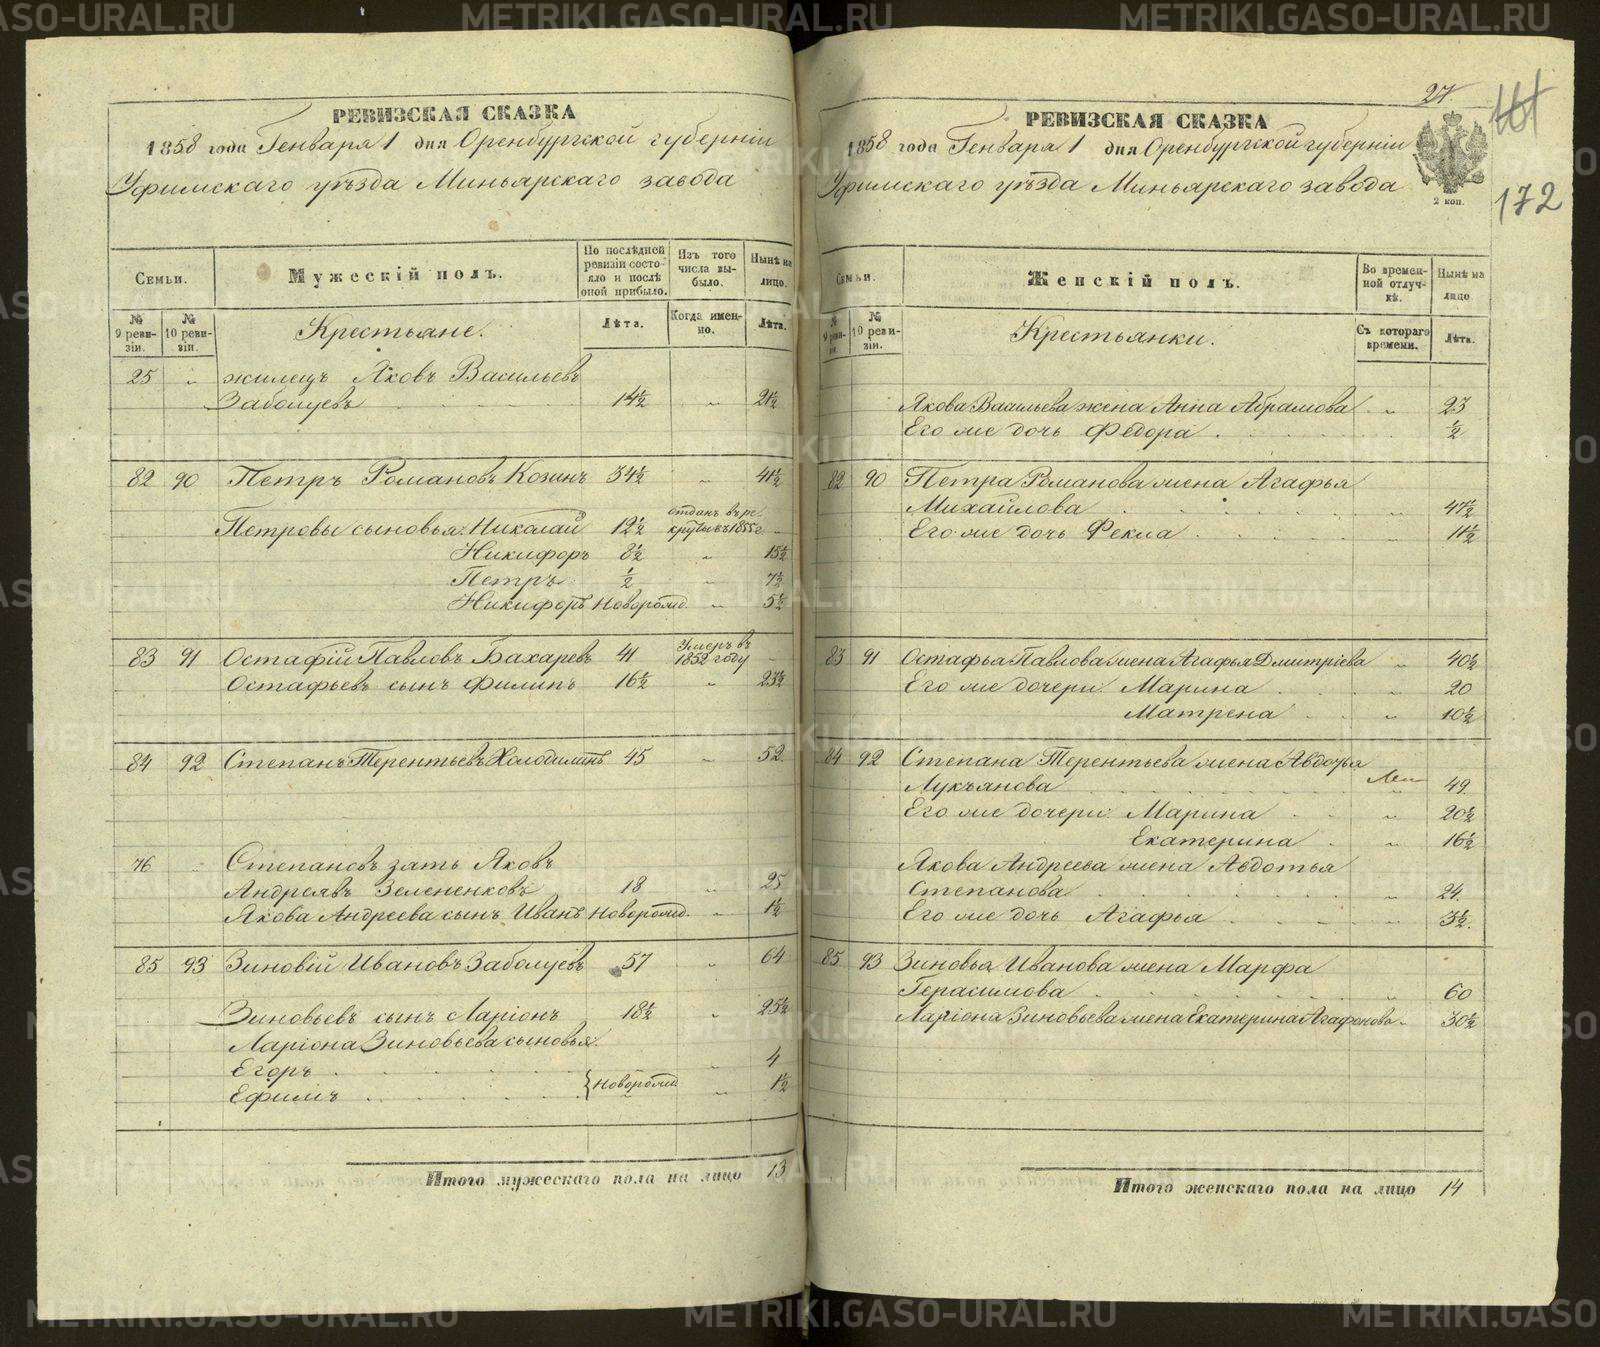 METRIKI.GASO-URAL.RU
РЕВИЗСКАЯ СКАЗКА
1858 года Генваря 1 дня Оренбургской губерніи
Уфимскаго уѣзда Миньярскаго завода
Семьи.
Мужескій полъ.
По послѣдней ревизіи состояло и послѣ оной прибыло.
Изъ того числа выбыло.
Нынѣ на лицо.
№ 9 ревизіи.
№ 10 ревизіи.
Крестьяне.
Лѣта.
Когда именно.
Лѣта.
25 " жилецъ Яковъ Васильевъ
Заболуевъ 14½ " 21½
82 90 Петръ Романовъ Козинъ 34½ " 41½
Петровы сыновья: Николай 12½ отданъ въ рекруты въ 1855 г. -
Никифоръ 8½ " 15½
Петръ ½ " 7½
Никифоръ новорожд. " 5½
83 91 Остафій Павловъ Бахаревъ 41 Умеръ въ 1852 году -
Остафьевъ сынъ Филипъ 16½ " 23½
84 92 Степанъ Терентьевъ Холодилинъ 45 " 52.
76 " Степановъ зять Яковъ
Андреявъ Зелененковъ 18 " 25
Якова Андреева сынъ Иванъ новорожд. " 1½
85 93 Зиновій Ивановъ Заболуевъ 57 " 64
Зиновьевъ сынъ Ларіонъ 18½ " 25½
Ларіона Зиновьева сыновья:
Егоръ " 4
Ефимъ новорожд. " 1½
Итого мужескаго пола на лицо 13
27.
172
РЕВИЗСКАЯ СКАЗКА
1858 года Генваря 1 дня Оренбургской губерніи
Уфимскаго уѣзда Миньярскаго завода
2 коп.
Семьи.
Женскій полъ.
Во временной отлучкѣ.
Нынѣ на лицо.
№ 9 ревизіи.
№ 10 ревизіи.
Крестьянки.
Съ котораго времени.
Лѣта.
Якова Васильева жена Анна Абрамова " 23
Его же дочь Федора ½
82 90 Петра Романова жена Агафья
Михайлова " 47½
Его же дочь Фекла 11½
83 91 Остафья Павлова жена Агафья Дмитріева " 40½
Его же дочери: Марина " 20
Матрена " 10½
84 92 Степана Терентьева жена Авдотья
Лукъянова " 49.
Его же дочери: Марина " 20½
Екатерина " 16½
Якова Андреева жена Авдотья
Степанова " 24.
Его же дочь Агафья 3½.
85 93 Зиновья Иванова жена Марфа
Герасимова " 60
Ларіона Зиновьева жена Екатерина Агафонова " 30½
Итого женскаго пола на лицо 14